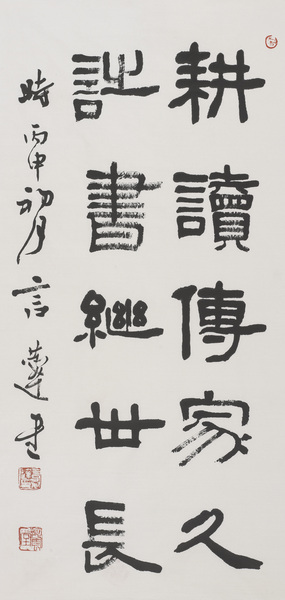 耕讀傳家久
詩書繼世長
時丙申初月言書